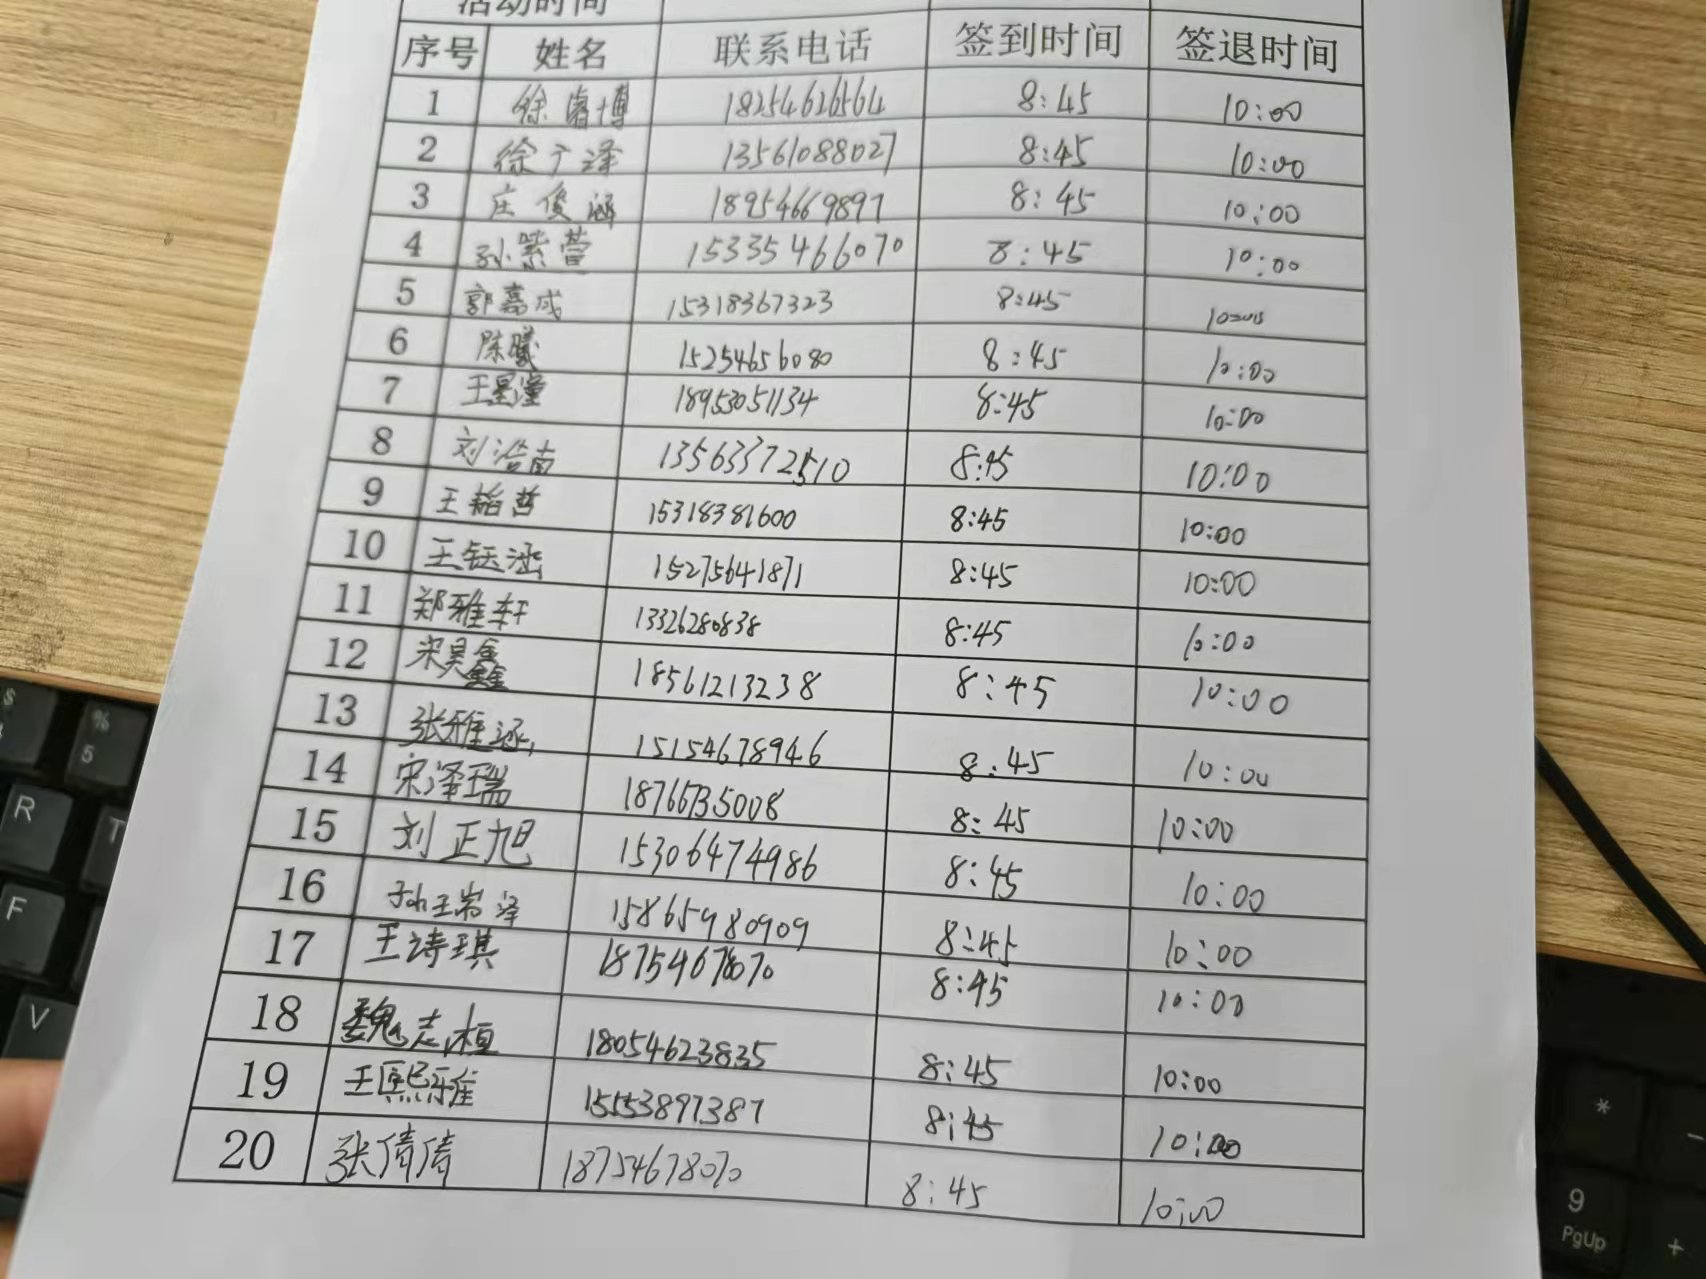 活动时间
序号 姓名 联系电话 签到时间 签退时间
1 徐睿博 18254626564 8:45 10:00
2 徐广泽 13561088027 8:45 10:00
3 庄俊涵 18954669897 8:45 10:00
4 孙紫萱 15335466070 8:45 10:00
5 郭嘉成 15318367323 8:45 10:00
6 陈曦 15254656080 8:45 10:00
7 王星潼 18953051134 8:45 10:00
8 刘浩南 13563372510 8:45 10:00
9 王韬哲 15318381600 8:45 10:00
10 王钰涵 15275641871 8:45 10:00
11 郑雅轩 13326280838 8:45 10:00
12 宋昊鑫 18561213238 8:45 10:00
13 张雅涵 15154678946 8:45 10:00
14 宋泽瑞 18766735008 8:45 10:00
15 刘正旭 15306474986 8:45 10:00
16 孙王岩泽 15865980909 8:45 10:00
17 王诗琪 18754678070 8:45 10:00
18 魏志桓 18054623835 8:45 10:00
19 王熙雅 15153897387 8:45 10:00
20 张倩倩 18754678070 8:45 10:00
$
%
5
R
T
F
V
*
-
9
PgUp
+